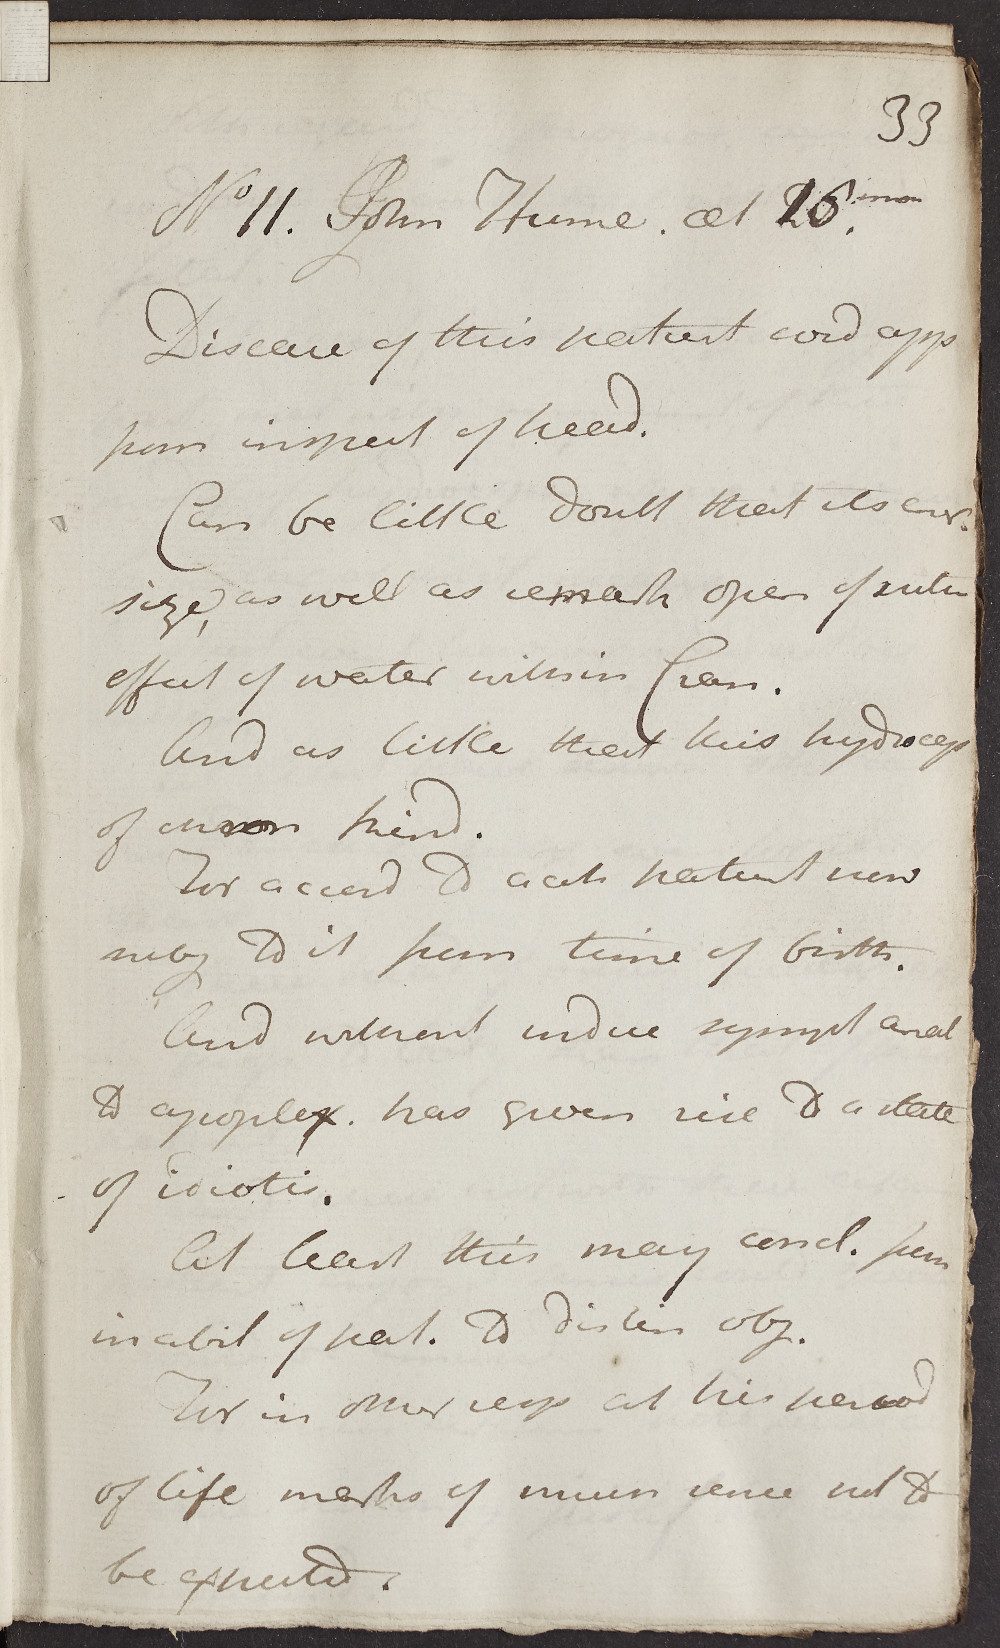 33
No 11. John Hume. æt 16. mon
Disease of this patient cord apps
from inspect of head.
Can be little doubt that its
size, as well as remark open of sutu
effect of water within Cran.
And as little that this hydrocep
of kind.
For accord to acct patient now
subj to it from time of birth.
And without induc sympt anal
to apoplex. has given rise to a state
of idiotis.
At least this may concl. from
inabil of pat. to distin obj.
For in other resp at his period
of life marks of much sense not to
be expected.